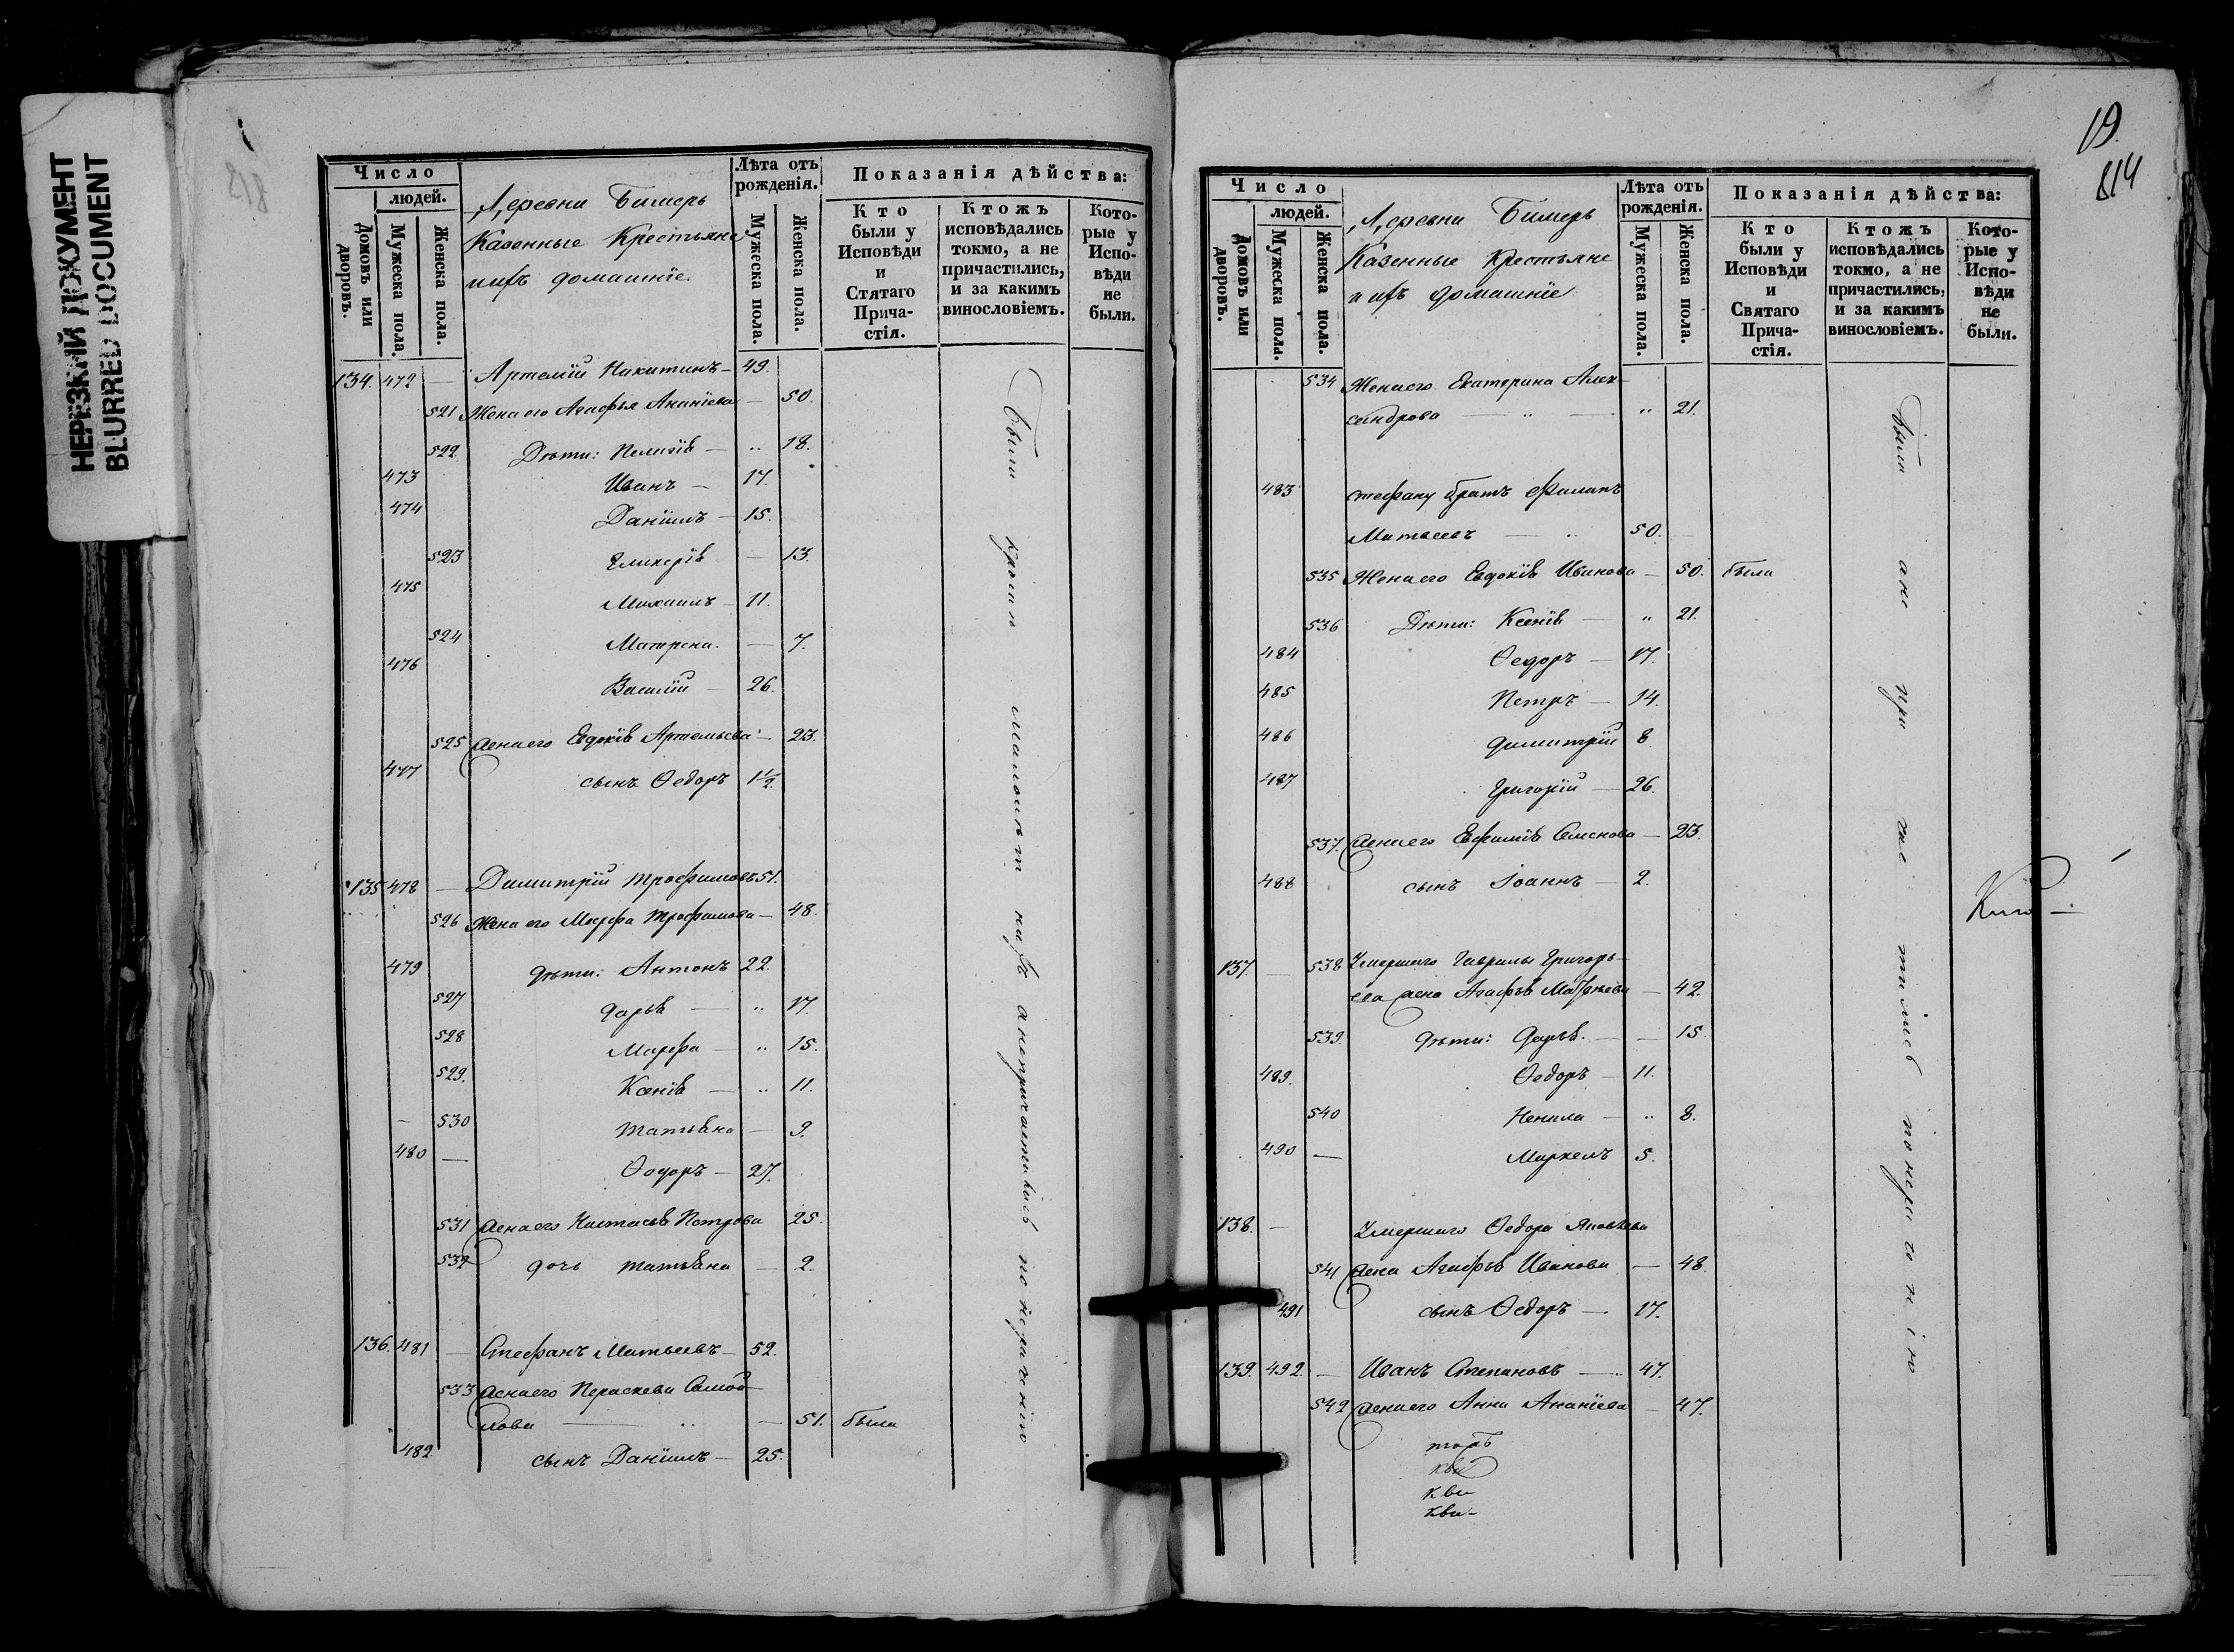 НЕРЕЗКИЙ ДОКУМЕНТ
BLURRED DOCUMENT
Число
людей.
Домовъ или дворовъ.
Мужеска пола.
Женска пола.
Деревни Бимерь
Казенные Крестьяне
ихъ домашніе.
Лѣта отъ рожденія.
Мужеска пола.
Женска пола.
Показанія дѣйства:
Кто были у Исповѣди и Стятаго Прича- стія.
Ктожъ исповѣдались токмо, а не причастились, и за какимъ винословіемъ.
Кото- рые у Испо- вѣди не были.
134. 472 — Артемій Никитинъ — 49.
521 Жена его Агафья Ананіева — 50.
522 Дѣти: Пелагія — „ 18.
473 Иванъ — 17.
474 Даніилъ — 15.
523 Гликерія — 13.
475 Михаилъ — 11.
524 Матрена. — 7.
476 Василій — 26.
525 жена его Евдокія Артемьева — 23.
477 сынъ Ѳедоръ 1½
135 478 — Димитрій Трофимовъ 51.
526 Жена его Марфа Трофимова — 48.
479 дѣти: Антонъ 22.
527 Дарья — „ 17.
528 Марфа — „ 15.
529. Ксенія — „ 11.
530 Татьяна — 9.
480 — Ѳедоръ — 27.
531 жена его Настасья Петрова 25.
532 дочь Татьяна — 2.
136. 481 — Стефанъ Матвеевъ — 52.
533 жена его Параскева Самой-
лова — „ — 51. была
482 сынъ Даніилъ — 25.
были кроме малолѣт нихъ а непричастились по нераченію
19.
814
Число
людей.
Домовъ или дворовъ.
Мужеска пола.
Женска пола.
Деревни Бимерь
Казенные Крестьяне
и ихъ домашніе
Лѣта отъ рожденія.
Мужеска пола.
Женска пола.
Показанія дѣйства:
Кто были у Исповѣди и Святаго Прича- стія.
Ктожъ исповѣдались токмо, а не причастились, и за какимъ винословіемъ.
Кото- рые у Испо- вѣди не были.
534 Жена его Екатерина Алек-
сандрова — „ — „ 21.
483 Стефану братъ Филипъ
Матвеевъ — „ 50.
535 Жена его Евдокія Иванова — 50. была
536 Дѣти: Ксенія — „ 21.
484 Ѳедоръ — 17.
485 Петръ — 14.
486 Димитрій 8
487 Григорій — 26.
537. жена его Евфимія Семенова — 23.
488 сынъ Іоаннъ — 2.
137. — 538 Умершаго Гаврилы Григорь-
ева жена Агафья Матвѣева — 42.
539. дѣти: Дарья. — — 15.
489. Ѳедоръ — 11.
540 Ненила — „ 8.
490 — Маркелъ 5.
138. — Умершаго Ѳедора Яковлева
541 жена Агафья Иванова — 48.
491 сынъ Ѳедоръ — 17.
139. 492. — Иванъ Степановъ — 47.
542 жена его Анна Ананіева — 47.
кви
кви
кви-
были а не при ча стились по нера че н ію